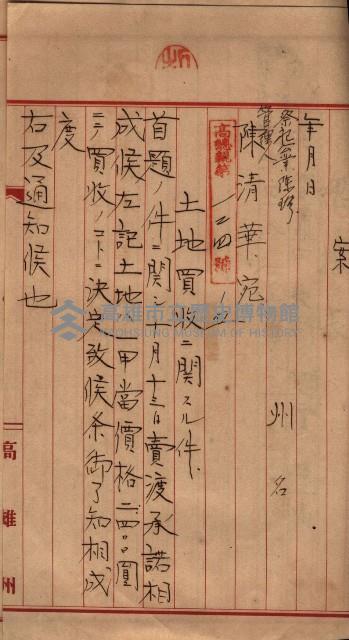 案
年月日
州名
祭祀業陳瑢
管理人
陳清華宛
高總親第一二四號ノ
土地買收ニ関スル件、
首題ノ件ニ関シ 月十三日賣渡承諾相
成候左記土地 一甲當價格二四〇〇圓
ニテ買收ノコトニ決定致候条御了知相成
度
右及通知候也
高雄州
高雄市立歷史博物館
KAOHSIUNG MUSEUM OF HISTORY